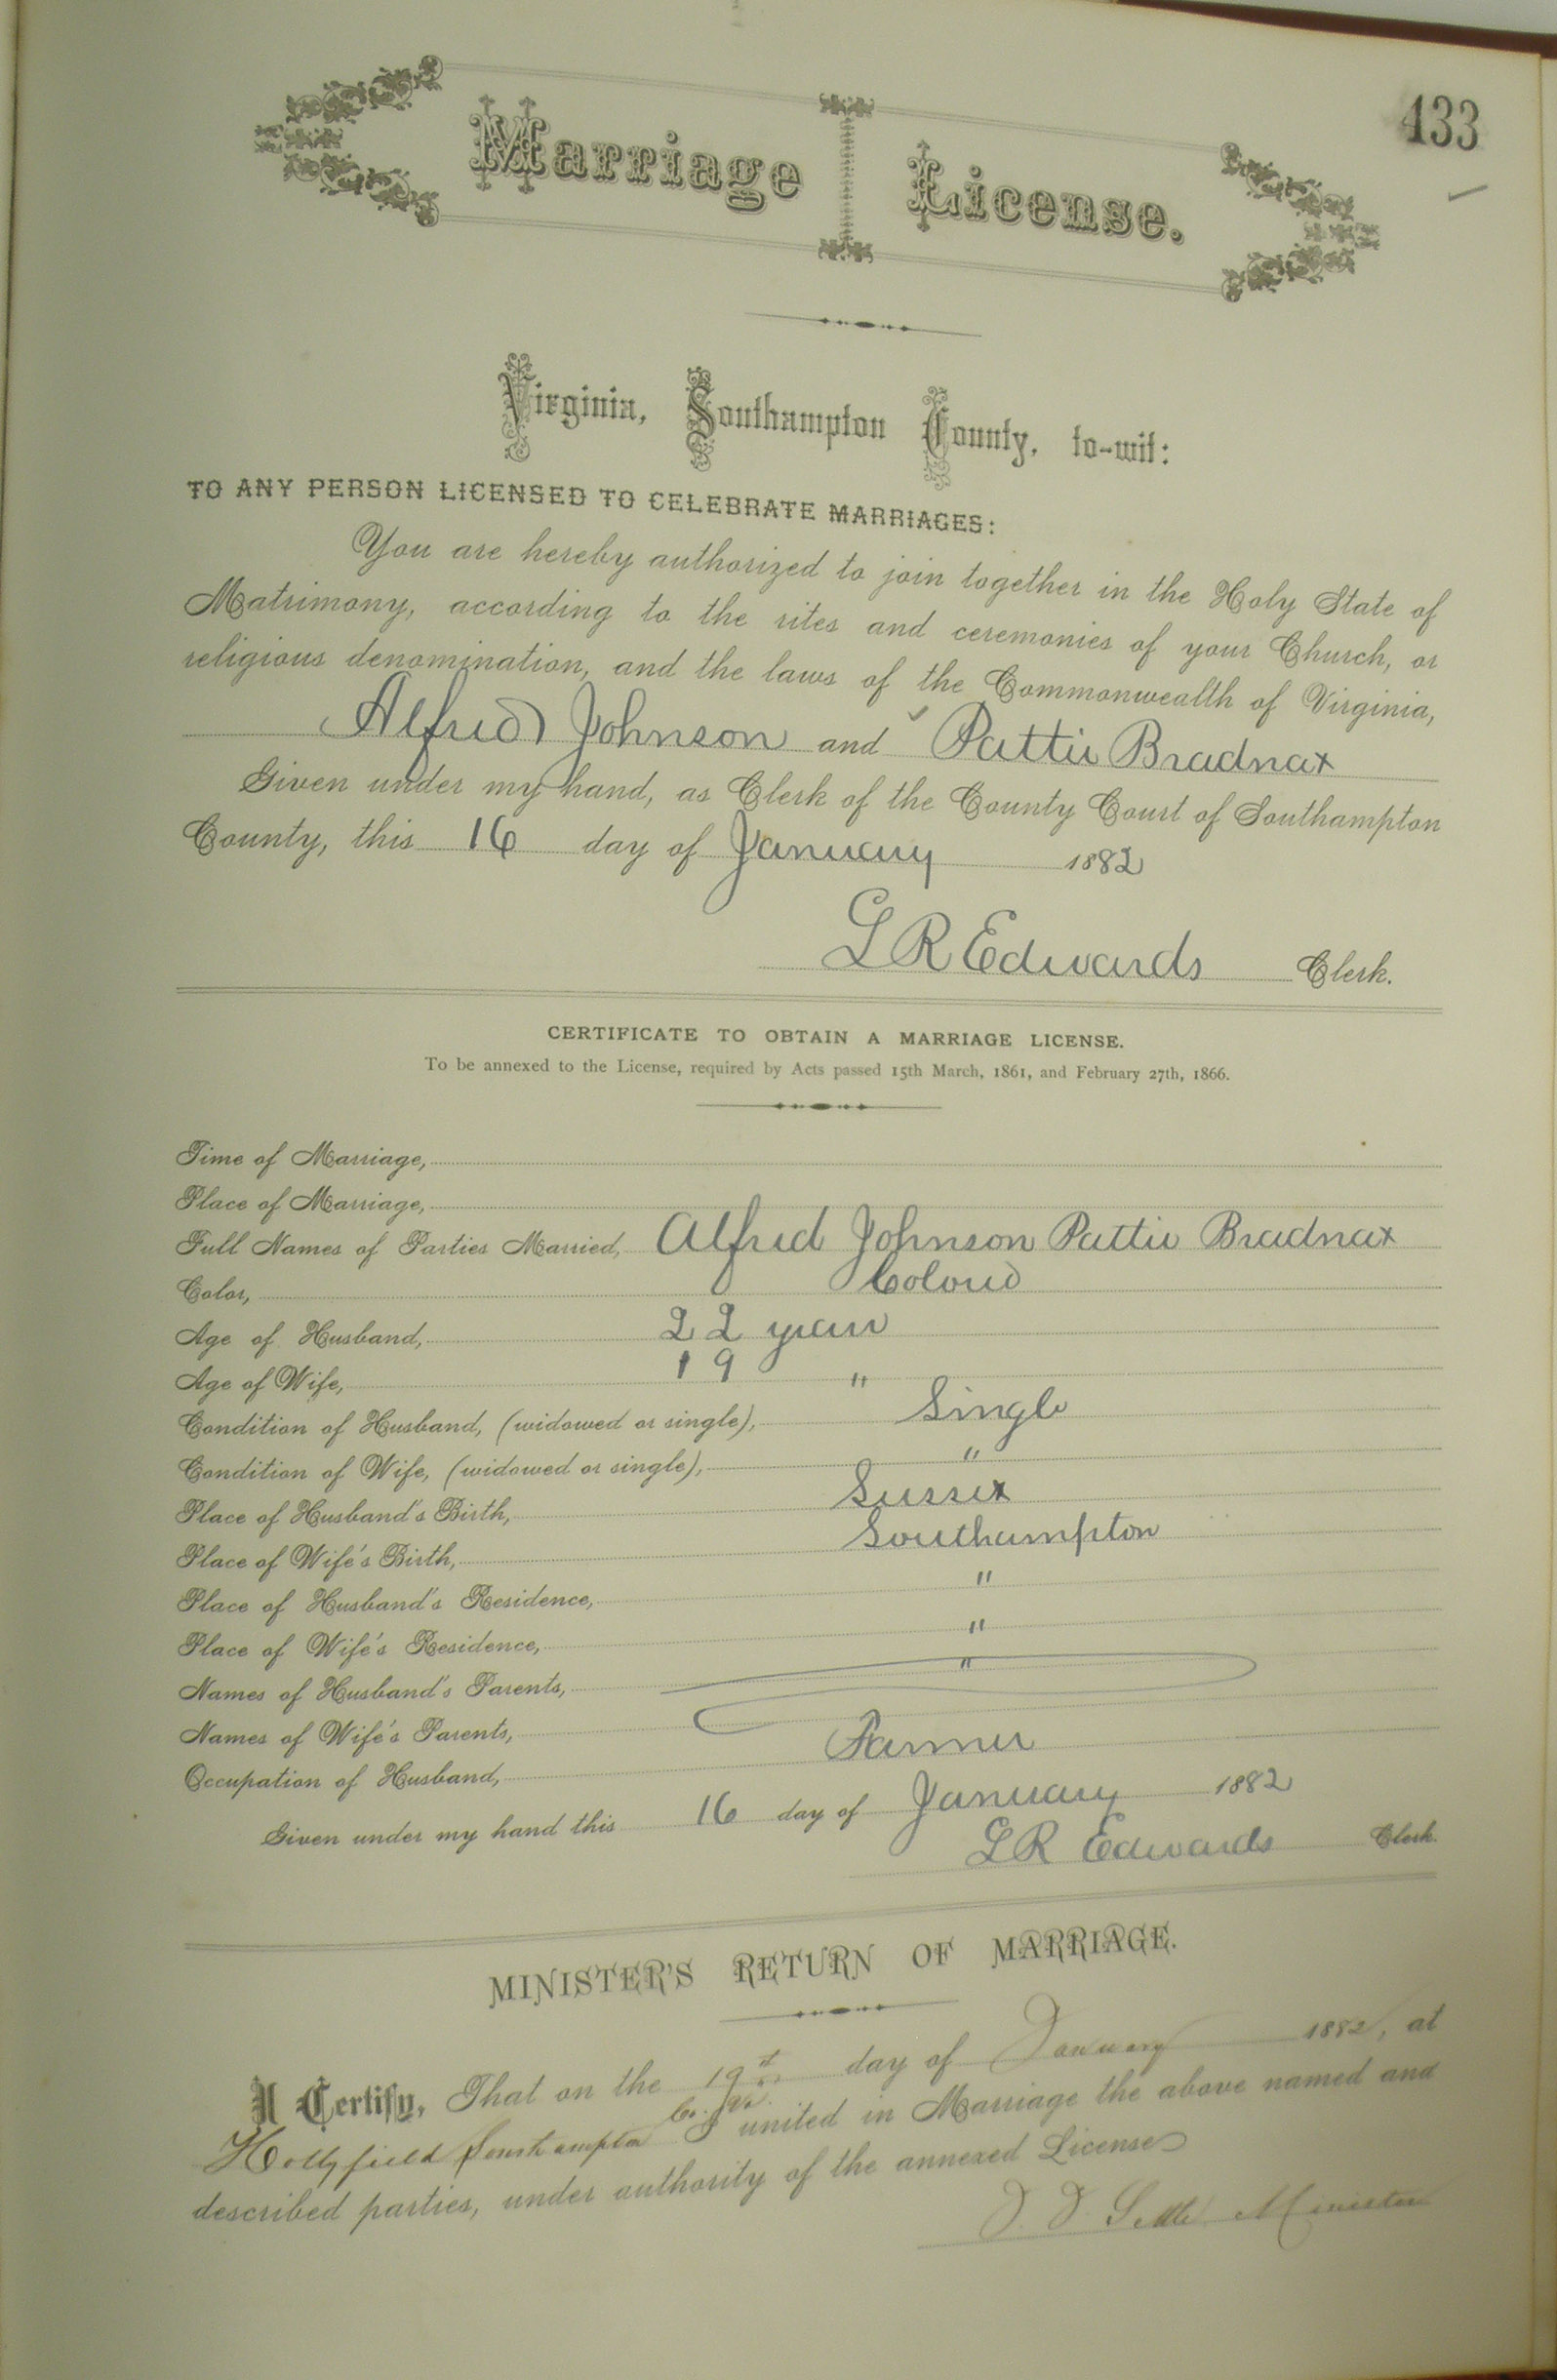 433
Marriage License.
Virginia, Southampton County, to-wit:
TO ANY PERSON LICENSED TO CELEBRATE MARRIAGES:
You are hereby authorized to join together in the Holy State of
Matrimony, according to the rites and ceremonies of your Church, or
religious denomination, and the laws of the Commonwealth of Virginia,
Alfred Johnson and Pattie Bradnax
Given under my hand, as Clerk of the County Court of Southampton
County, this 16 day of January 1882
L R Edwards Clerk.
CERTIFICATE TO OBTAIN A MARRIAGE LICENSE.
To be annexed to the License, required by Acts passed 15th March, 1861, and February 27th, 1866.
Time of Marriage,
Place of Marriage,
Full Names of Parties Married, Alfred Johnson Pattie Bradnax
Color, Colored
Age of Husband, 22 years
Age of Wife, 19 "
Condition of Husband, (widowed or single), Single
Condition of Wife, (widowed or single), "
Place of Husband's Birth, Sussex
Place of Wife's Birth, Southampton
Place of Husband's Residence, "
Place of Wife's Residence, "
Names of Husband's Parents, "
Names of Wife's Parents,
Occupation of Husband, Farmer
Given under my hand this 16 day of January 1882
L R Edwards Clerk.
MINISTER'S RETURN OF MARRIAGE.
I Certify, That on the 19th day of January 1882, at
Hollyfield Southampton Co. Va. I united in Marriage the above named and
described parties, under authority of the annexed License
Minister